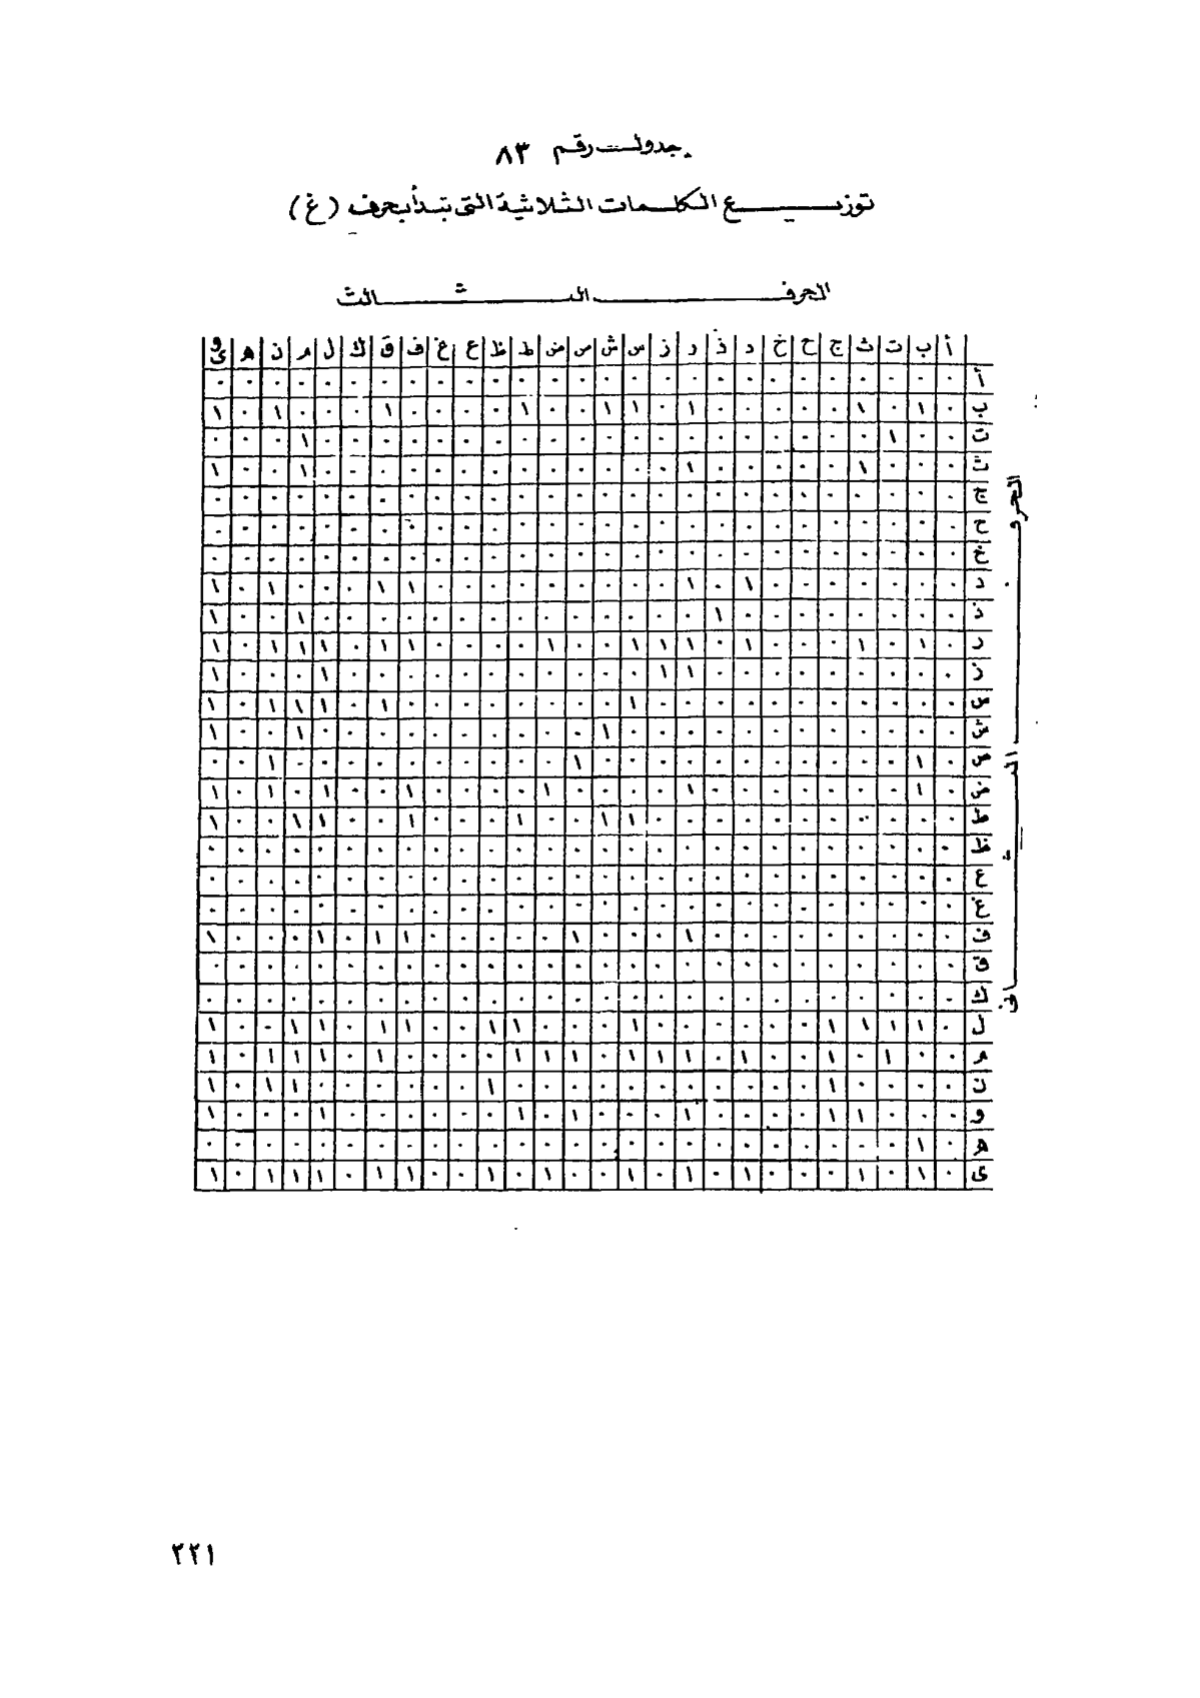 جدول رقم ٨٣
توزيع الكلمات الثلاثية التى تبدأ بحرف (غ)
الحرف الثالث
أ ب ت ث ج ح خ د ذ ر ز س ش ص ض ط ظ ع غ ف ق ك ل م ن ه و ى
الحرف الثانى
أ ٠ ٠ ٠ ٠ ٠ ٠ ٠ ٠ ٠ ٠ ٠ ٠ ٠ ٠ ٠ ٠ ٠ ٠ ٠ ٠ ٠ ٠ ٠ ٠ ٠ ٠ ٠
ب ٠ ١ ٠ ١ ٠ ٠ ٠ ٠ ٠ ١ ٠ ١ ١ ٠ ٠ ١ ٠ ٠ ٠ ٠ ١ ٠ ٠ ٠ ١ ٠ ١
ت ٠ ٠ ١ ٠ ٠ ٠ ٠ ٠ ٠ ٠ ٠ ٠ ٠ ٠ ٠ ٠ ٠ ٠ ٠ ٠ ٠ ٠ ٠ ١ ٠ ٠ ٠
ث ٠ ٠ ٠ ١ ٠ ٠ ٠ ٠ ٠ ١ ٠ ٠ ٠ ٠ ٠ ٠ ٠ ٠ ٠ ٠ ٠ ٠ ٠ ١ ٠ ٠ ١
ج ٠ ٠ ٠ ٠ ٠ ٠ ٠ ٠ ٠ ٠ ٠ ٠ ٠ ٠ ٠ ٠ ٠ ٠ ٠ ٠ ٠ ٠ ٠ ٠ ٠ ٠ ٠
ح ٠ ٠ ٠ ٠ ٠ ٠ ٠ ٠ ٠ ٠ ٠ ٠ ٠ ٠ ٠ ٠ ٠ ٠ ٠ ٠ ٠ ٠ ٠ ٠ ٠ ٠ ٠
خ ٠ ٠ ٠ ٠ ٠ ٠ ٠ ٠ ٠ ٠ ٠ ٠ ٠ ٠ ٠ ٠ ٠ ٠ ٠ ٠ ٠ ٠ ٠ ٠ ٠ ٠ ٠
د ٠ ٠ ٠ ٠ ٠ ٠ ٠ ١ ٠ ١ ٠ ٠ ٠ ٠ ٠ ٠ ٠ ٠ ٠ ١ ١ ٠ ٠ ٠ ١ ٠ ١
ذ ٠ ٠ ٠ ٠ ٠ ٠ ٠ ٠ ١ ٠ ٠ ٠ ٠ ٠ ٠ ٠ ٠ ٠ ٠ ٠ ٠ ٠ ٠ ١ ٠ ٠ ١
ر ٠ ١ ٠ ١ ٠ ٠ ٠ ١ ٠ ١ ١ ١ ٠ ٠ ١ ٠ ٠ ٠ ٠ ١ ١ ٠ ١ ١ ١ ٠ ١
ز ٠ ٠ ٠ ٠ ٠ ٠ ٠ ٠ ٠ ١ ١ ٠ ٠ ٠ ٠ ٠ ٠ ٠ ٠ ٠ ٠ ٠ ١ ٠ ٠ ٠ ١
س ٠ ٠ ٠ ٠ ٠ ٠ ٠ ٠ ٠ ٠ ٠ ١ ٠ ٠ ٠ ٠ ٠ ٠ ٠ ٠ ١ ٠ ١ ١ ١ ٠ ١
ش ٠ ٠ ٠ ٠ ٠ ٠ ٠ ٠ ٠ ٠ ٠ ٠ ١ ٠ ٠ ٠ ٠ ٠ ٠ ٠ ٠ ٠ ٠ ١ ٠ ٠ ١
ص ٠ ١ ٠ ٠ ٠ ٠ ٠ ٠ ٠ ٠ ٠ ٠ ٠ ١ ٠ ٠ ٠ ٠ ٠ ٠ ٠ ٠ ٠ ٠ ١ ٠ ٠
ض ٠ ١ ٠ ٠ ٠ ٠ ٠ ٠ ٠ ١ ٠ ٠ ٠ ٠ ١ ٠ ٠ ٠ ٠ ١ ٠ ٠ ١ ٠ ١ ٠ ١
ط ٠ ٠ ٠ ٠ ٠ ٠ ٠ ٠ ٠ ٠ ٠ ١ ١ ٠ ٠ ١ ٠ ٠ ٠ ١ ٠ ٠ ١ ١ ٠ ٠ ١
ظ ٠ ٠ ٠ ٠ ٠ ٠ ٠ ٠ ٠ ٠ ٠ ٠ ٠ ٠ ٠ ٠ ٠ ٠ ٠ ٠ ٠ ٠ ٠ ٠ ٠ ٠ ٠
ع ٠ ٠ ٠ ٠ ٠ ٠ ٠ ٠ ٠ ٠ ٠ ٠ ٠ ٠ ٠ ٠ ٠ ٠ ٠ ٠ ٠ ٠ ٠ ٠ ٠ ٠ ٠
غ ٠ ٠ ٠ ٠ ٠ ٠ ٠ ٠ ٠ ٠ ٠ ٠ ٠ ٠ ٠ ٠ ٠ ٠ ٠ ٠ ٠ ٠ ٠ ٠ ٠ ٠ ٠
ف ٠ ٠ ٠ ٠ ٠ ٠ ٠ ٠ ٠ ١ ٠ ٠ ٠ ١ ٠ ٠ ٠ ٠ ٠ ١ ١ ٠ ١ ٠ ٠ ٠ ١
ق ٠ ٠ ٠ ٠ ٠ ٠ ٠ ٠ ٠ ٠ ٠ ٠ ٠ ٠ ٠ ٠ ٠ ٠ ٠ ٠ ٠ ٠ ٠ ٠ ٠ ٠ ٠
ك ٠ ٠ ٠ ٠ ٠ ٠ ٠ ٠ ٠ ٠ ٠ ٠ ٠ ٠ ٠ ٠ ٠ ٠ ٠ ٠ ٠ ٠ ٠ ٠ ٠ ٠ ٠
ل ٠ ١ ١ ١ ١ ٠ ٠ ٠ ٠ ٠ ٠ ١ ٠ ٠ ٠ ١ ١ ٠ ٠ ١ ١ ٠ ١ ١ ٠ ٠ ١
م ٠ ٠ ١ ٠ ١ ٠ ٠ ١ ٠ ١ ١ ١ ٠ ١ ١ ١ ٠ ٠ ٠ ٠ ١ ٠ ١ ١ ١ ٠ ١
ن ٠ ٠ ٠ ٠ ١ ٠ ٠ ٠ ٠ ٠ ٠ ٠ ٠ ٠ ٠ ٠ ١ ٠ ٠ ٠ ٠ ٠ ٠ ١ ١ ٠ ١
و ٠ ٠ ٠ ١ ١ ٠ ٠ ٠ ٠ ١ ٠ ٠ ٠ ١ ٠ ١ ٠ ٠ ٠ ٠ ٠ ٠ ١ ٠ ٠ ٠ ١
ه ٠ ١ ٠ ٠ ٠ ٠ ٠ ٠ ٠ ٠ ٠ ٠ ٠ ٠ ٠ ٠ ٠ ٠ ٠ ٠ ٠ ٠ ٠ ٠ ٠ ٠ ٠
ى ٠ ١ ٠ ١ ٠ ٠ ٠ ١ ٠ ١ ٠ ١ ٠ ٠ ١ ٠ ١ ٠ ٠ ١ ١ ٠ ١ ١ ١ ٠ ١
٢٢١